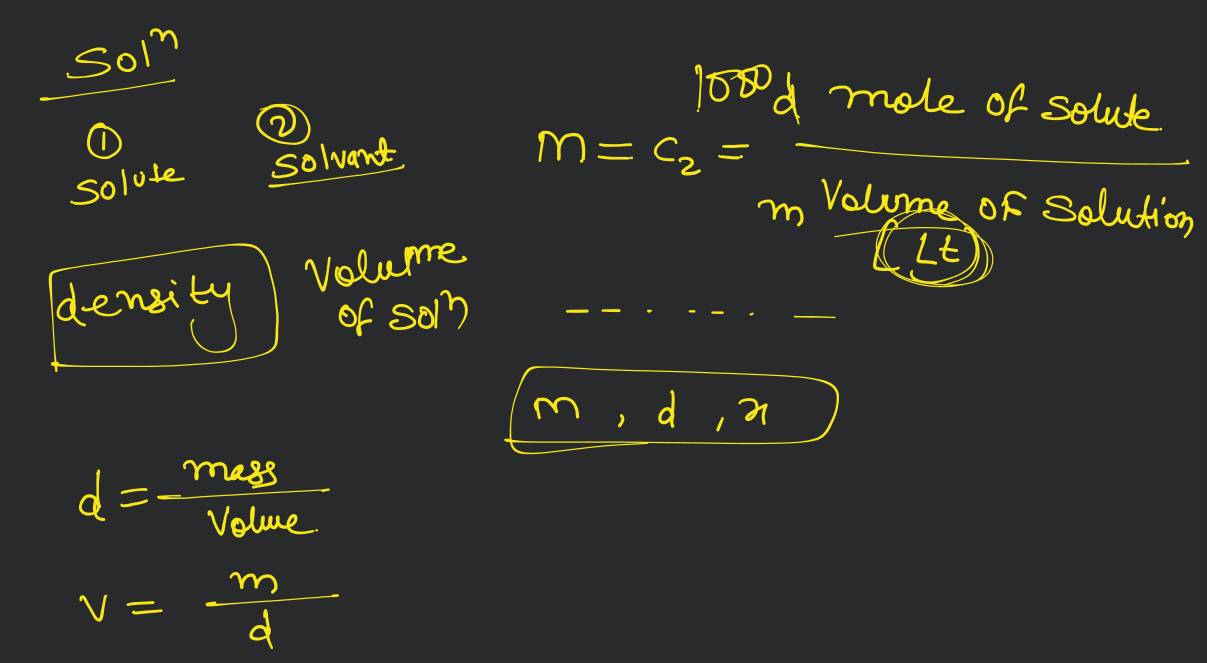 Solⁿ
① ②
Solute Solvant
1000 d mole of solute
M = C₂ =
m Volume of Solution
Lt
density Volume
of Solⁿ
-- . -- . —
m , d , x
d = mass
Volue.
V = m
d